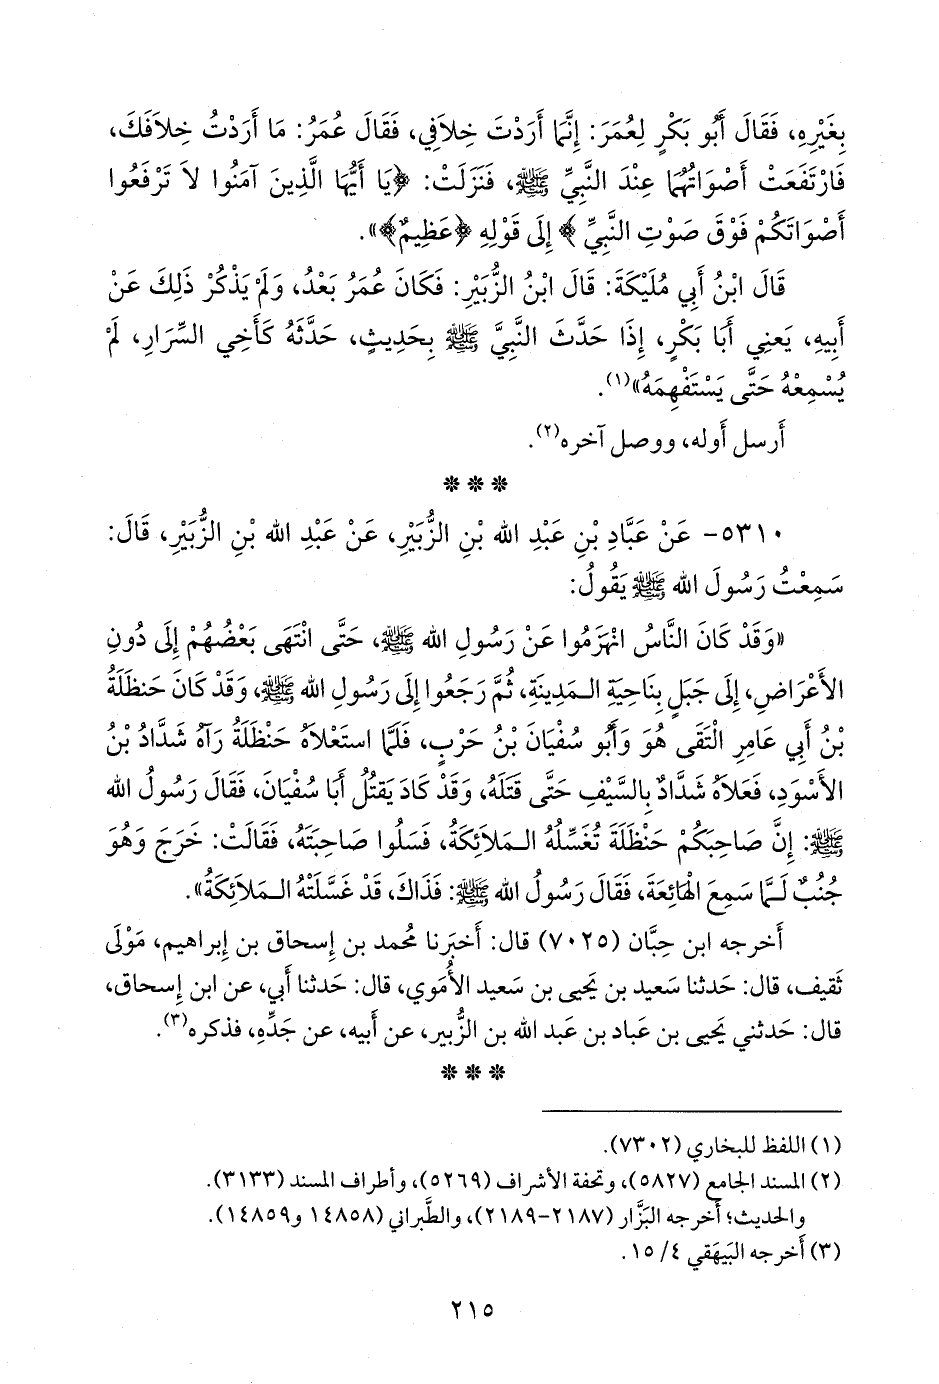 بِغَيْرِهِ، فَقَالَ أَبُو بَكْرٍ لِعُمَرَ: إِنَّمَا أَرَدْتَ خِلَافِي، فَقَالَ عُمَرُ: مَا أَرَدْتُ خِلاَفَكَ،
فَارْتَفَعَتْ أَصْوَاتُهُمَا عِنْدَ النَّبِيِّ ﷺ، فَنَزَلَتْ: ﴿يَا أَيُّهَا الَّذِينَ آمَنُوا لاَ تَرْفَعُوا
أَصْوَاتَكُمْ فَوْقَ صَوْتِ النَّبِيِّ﴾ إِلَى قَوْلِهِ ﴿عَظِيمٌ﴾».
قَالَ ابْنُ أَبِي مُلَيْكَةَ: قَالَ ابْنُ الزُّبَيْرِ: فَكَانَ عُمَرُ بَعْدُ، وَلَمْ يَذْكُرْ ذَلِكَ عَنْ
أَبِيهِ، يَعنِي أَبَا بَكْرٍ، إِذَا حَدَّثَ النَّبِيَّ ﷺ بِحَدِيثٍ، حَدَّثَهُ كَأَخِي السِّرَارِ، لَمْ
يُسْمِعْهُ حَتَّى يَسْتَفْهِمَهُ»(١).
أَرسل أَوله، ووصل آخره(٢).
* * *
٥٣١٠- عَنْ عَبَّادِ بْنِ عَبْدِ الله بْنِ الزُّبَيْرِ، عَنْ عَبْدِ الله بْنِ الزُّبَيْرِ، قَالَ:
سَمِعْتُ رَسُولَ الله ﷺ يَقُولُ:
«وَقَدْ كَانَ النَّاسُ انْهَزَمُوا عَنْ رَسُولِ الله ﷺ، حَتَّى انْتَهَى بَعْضُهُمْ إِلَى دُونِ
الأَعْرَاضِ، إِلَى جَبَلٍ بِنَاحِيَةِ الـمَدِينَةِ، ثُمَّ رَجَعُوا إِلَى رَسُولِ الله ﷺ، وَقَدْ كَانَ حَنظَلَةُ
بْنُ أَبِي عَامِرٍ الْتَقَى هُوَ وَأَبُو سُفْيَانَ بْنُ حَرْبٍ، فَلَمَّا استَعْلاَهُ حَنْظَلَةُ رَآهُ شَدَّادُ بْنُ
الأَسْوَدِ، فَعَلاَهُ شَدَّادٌ بِالسَّيْفِ حَتَّى قَتَلَهُ، وَقَدْ كَادَ يَقتُلُ أَبَا سُفْيَانَ، فَقَالَ رَسُولُ الله
ﷺ: إِنَّ صَاحِبَكُمْ حَنْظَلَةَ تُغَسِّلُهُ الـمَلاَئِكَةُ، فَسَلُوا صَاحِبَتَهُ، فَقَالَتْ: خَرَجَ وَهُوَ
جُنُبٌ لَـمَّا سَمِعَ الْهَائِعَةَ، فَقَالَ رَسُولُ الله ﷺ: فَذَاكَ، قَدْ غَسَّلَتْهُ الـمَلاَئِكَةُ».
أَخرجه ابن حِبَّان (٧٠٢٥) قال: أَخبَرنا مُحمد بن إِسحاق بن إِبراهيم، مَوْلَى
ثَقيف، قال: حَدثنا سَعيد بن يَحيى بن سَعيد الأُمَوي، قال: حَدثنا أَبي، عن ابن إِسحاق،
قال: حَدثني يَحيى بن عَباد بن عَبد الله بن الزُّبير، عن أَبيه، عن جَدِّهِ، فذكره(٣).
* * *
(١) اللفظ للبخاري (٧٣٠٢).
(٢) المسند الجامع (٥٨٢٧)، وتحفة الأشراف (٥٢٦٩)، وأطراف المسند (٣١٣٣).
والحديث؛ أخرجه البَزَّار (٢١٨٧-٢١٨٩)، والطَّبراني (١٤٨٥٨ و١٤٨٥٩).
(٣) أخرجه البَيهَقي ٤/ ١٥.
٢١٥